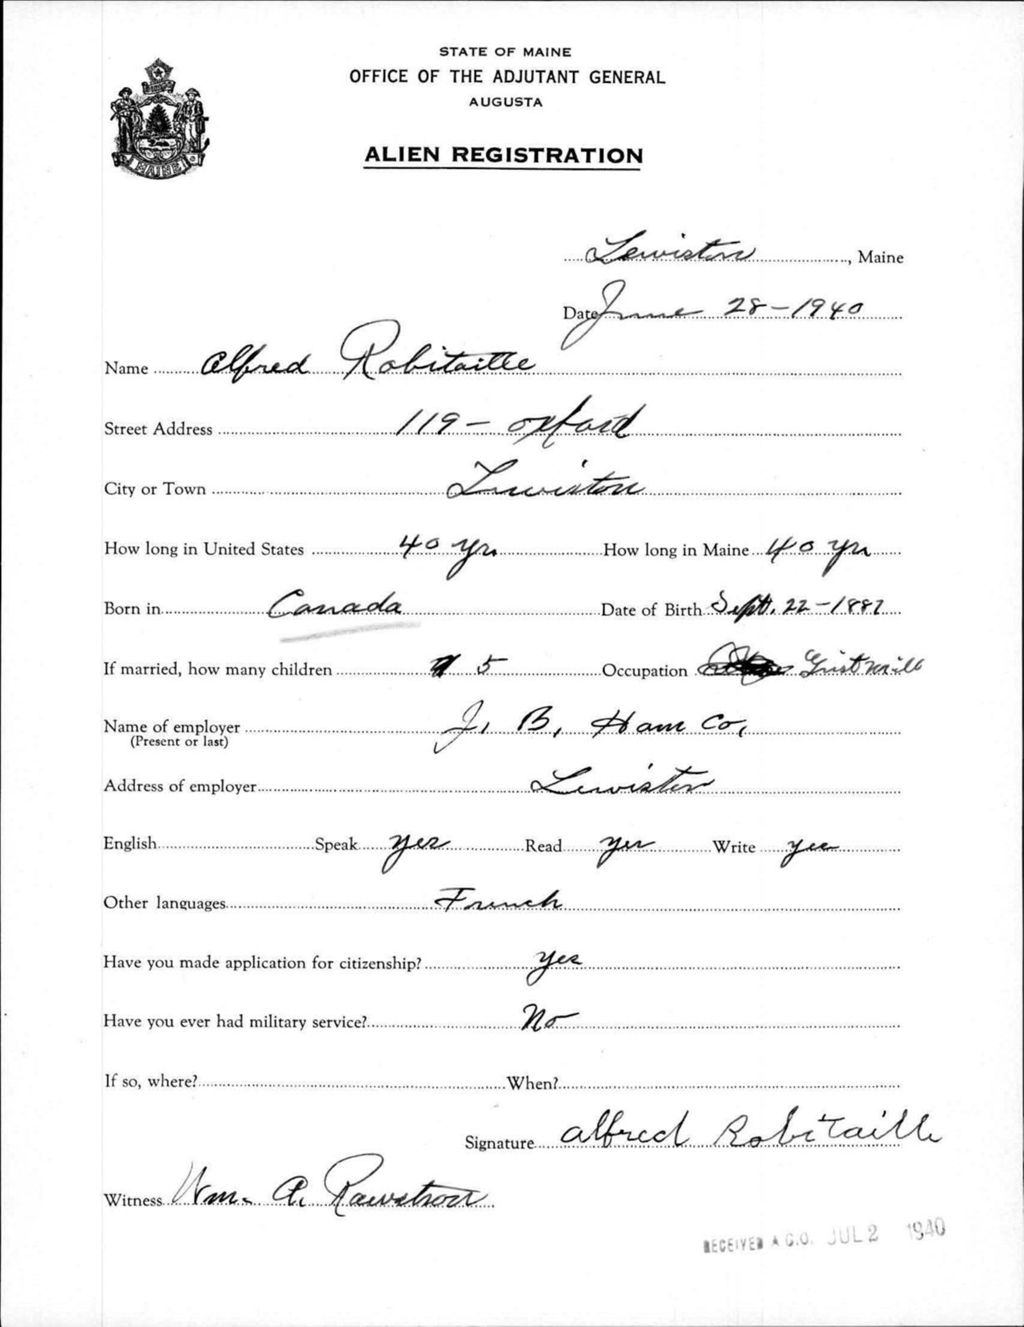 STATE OF MAINE
OFFICE OF THE ADJUTANT GENERAL
AUGUSTA
ALIEN REGISTRATION
Lewiston, Maine
Date June 28-1940
Name Alfred Robitaille
Street Address 119- oxford
City or Town Lewiston
How long in United States 40 yrs How long in Maine 40 yrs
Born in Canada Date of Birth Sept. 22-1887
If married, how many children 5 Occupation Grist mill
Name of employer J. B. Ham Co.
(Present or last)
Address of employer Lewiston
English Speak yes Read yes Write yes
Other languages French
Have you made application for citizenship? Yes
Have you ever had military service? No
If so, where? When?
Signature alfred Robitaille
Witness Wm. A. Rawstron
RECEIVED A.G.O. JUL 2 1940
MAINE